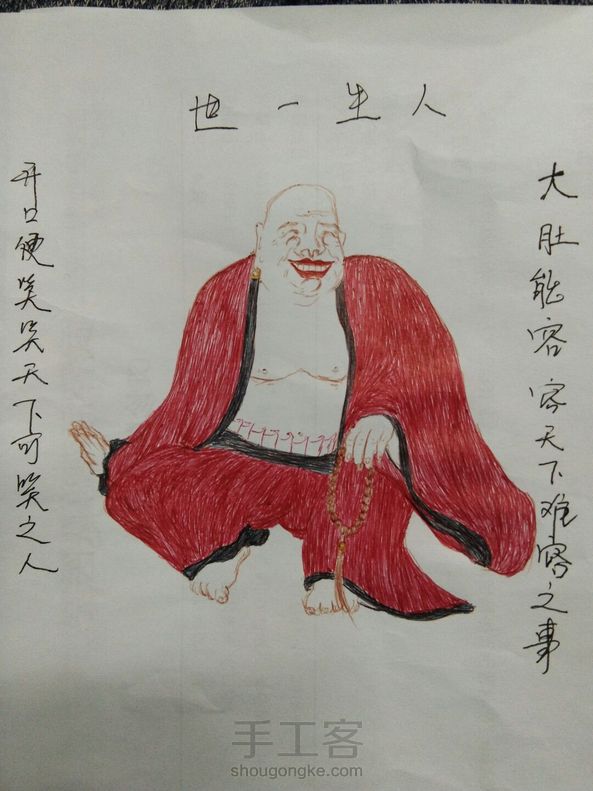 人生一世
大肚能容容天下难容之事
开口便笑笑天下可笑之人
手工客
shougongke.com